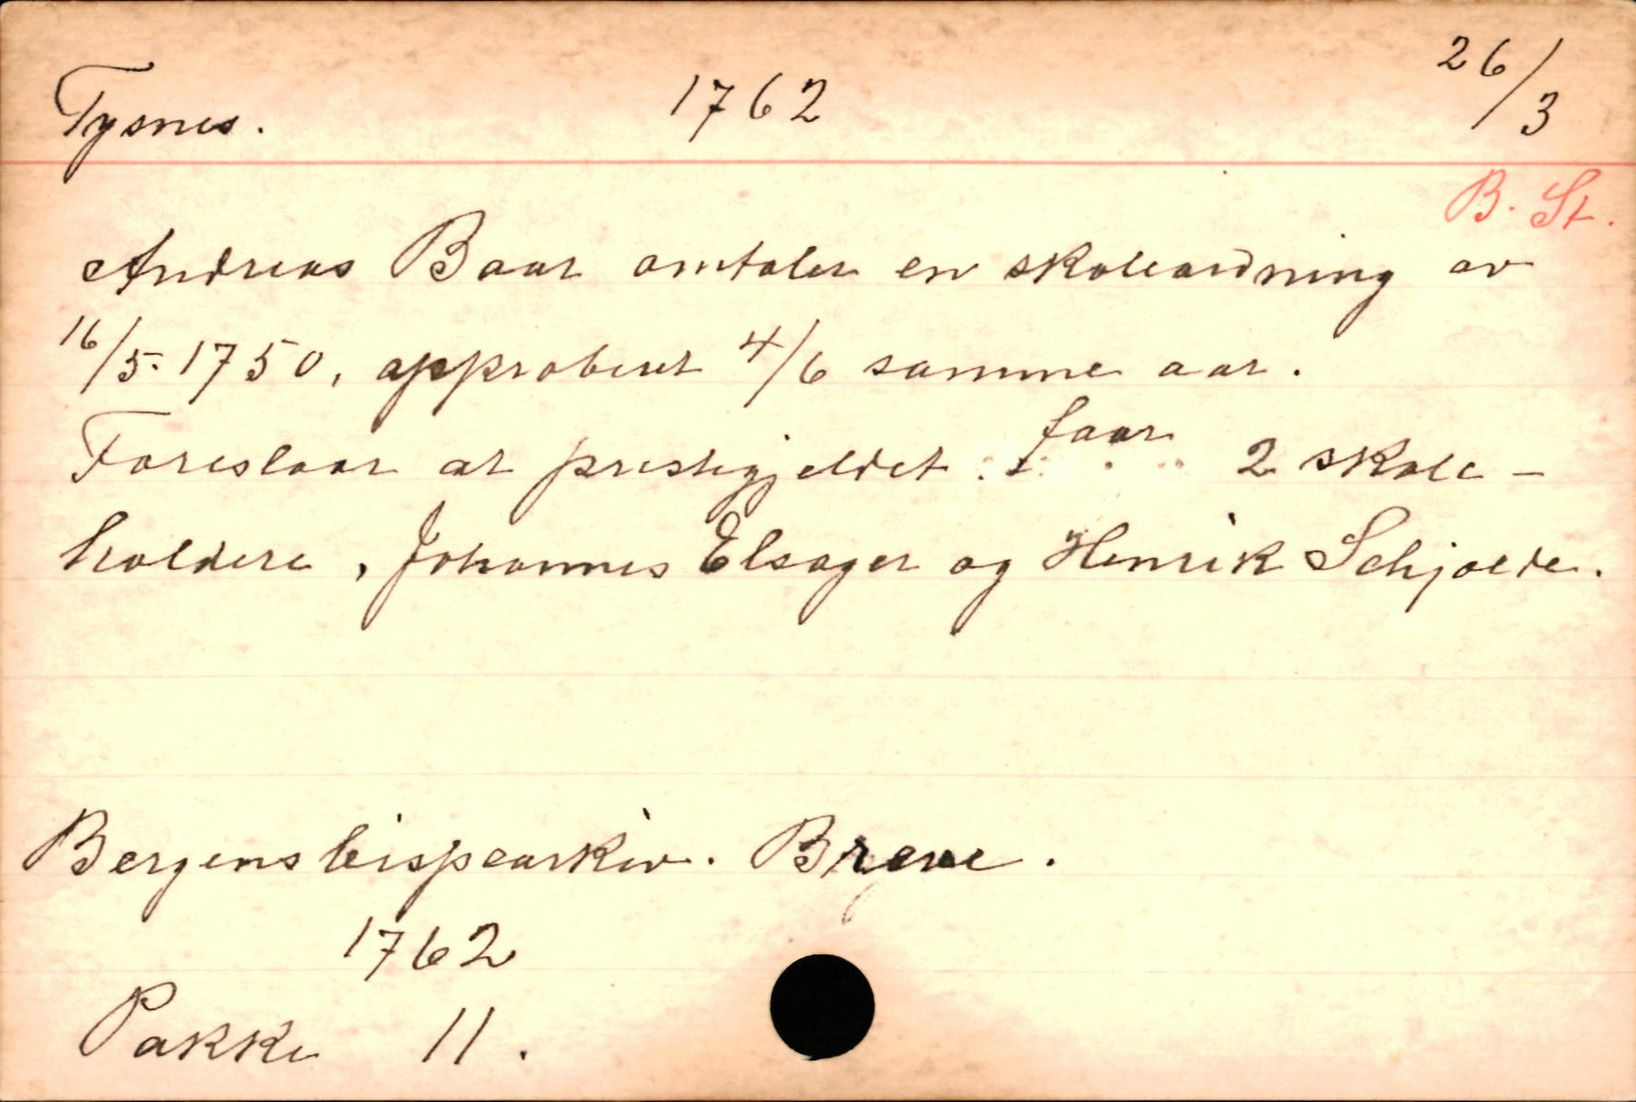 Tysnes. 1762 26/3
B. St.
Andreas Baar omtaler en skoleordning av
16/5. 1750, approberet 4/6 samme aar.
Foreslaar at prestegjeldet faar 2 skole-
holdere, Johannes Elsager og Henrik Schjolde.
Bergens bispearkiv. Breve.
1762
Pakke 11.